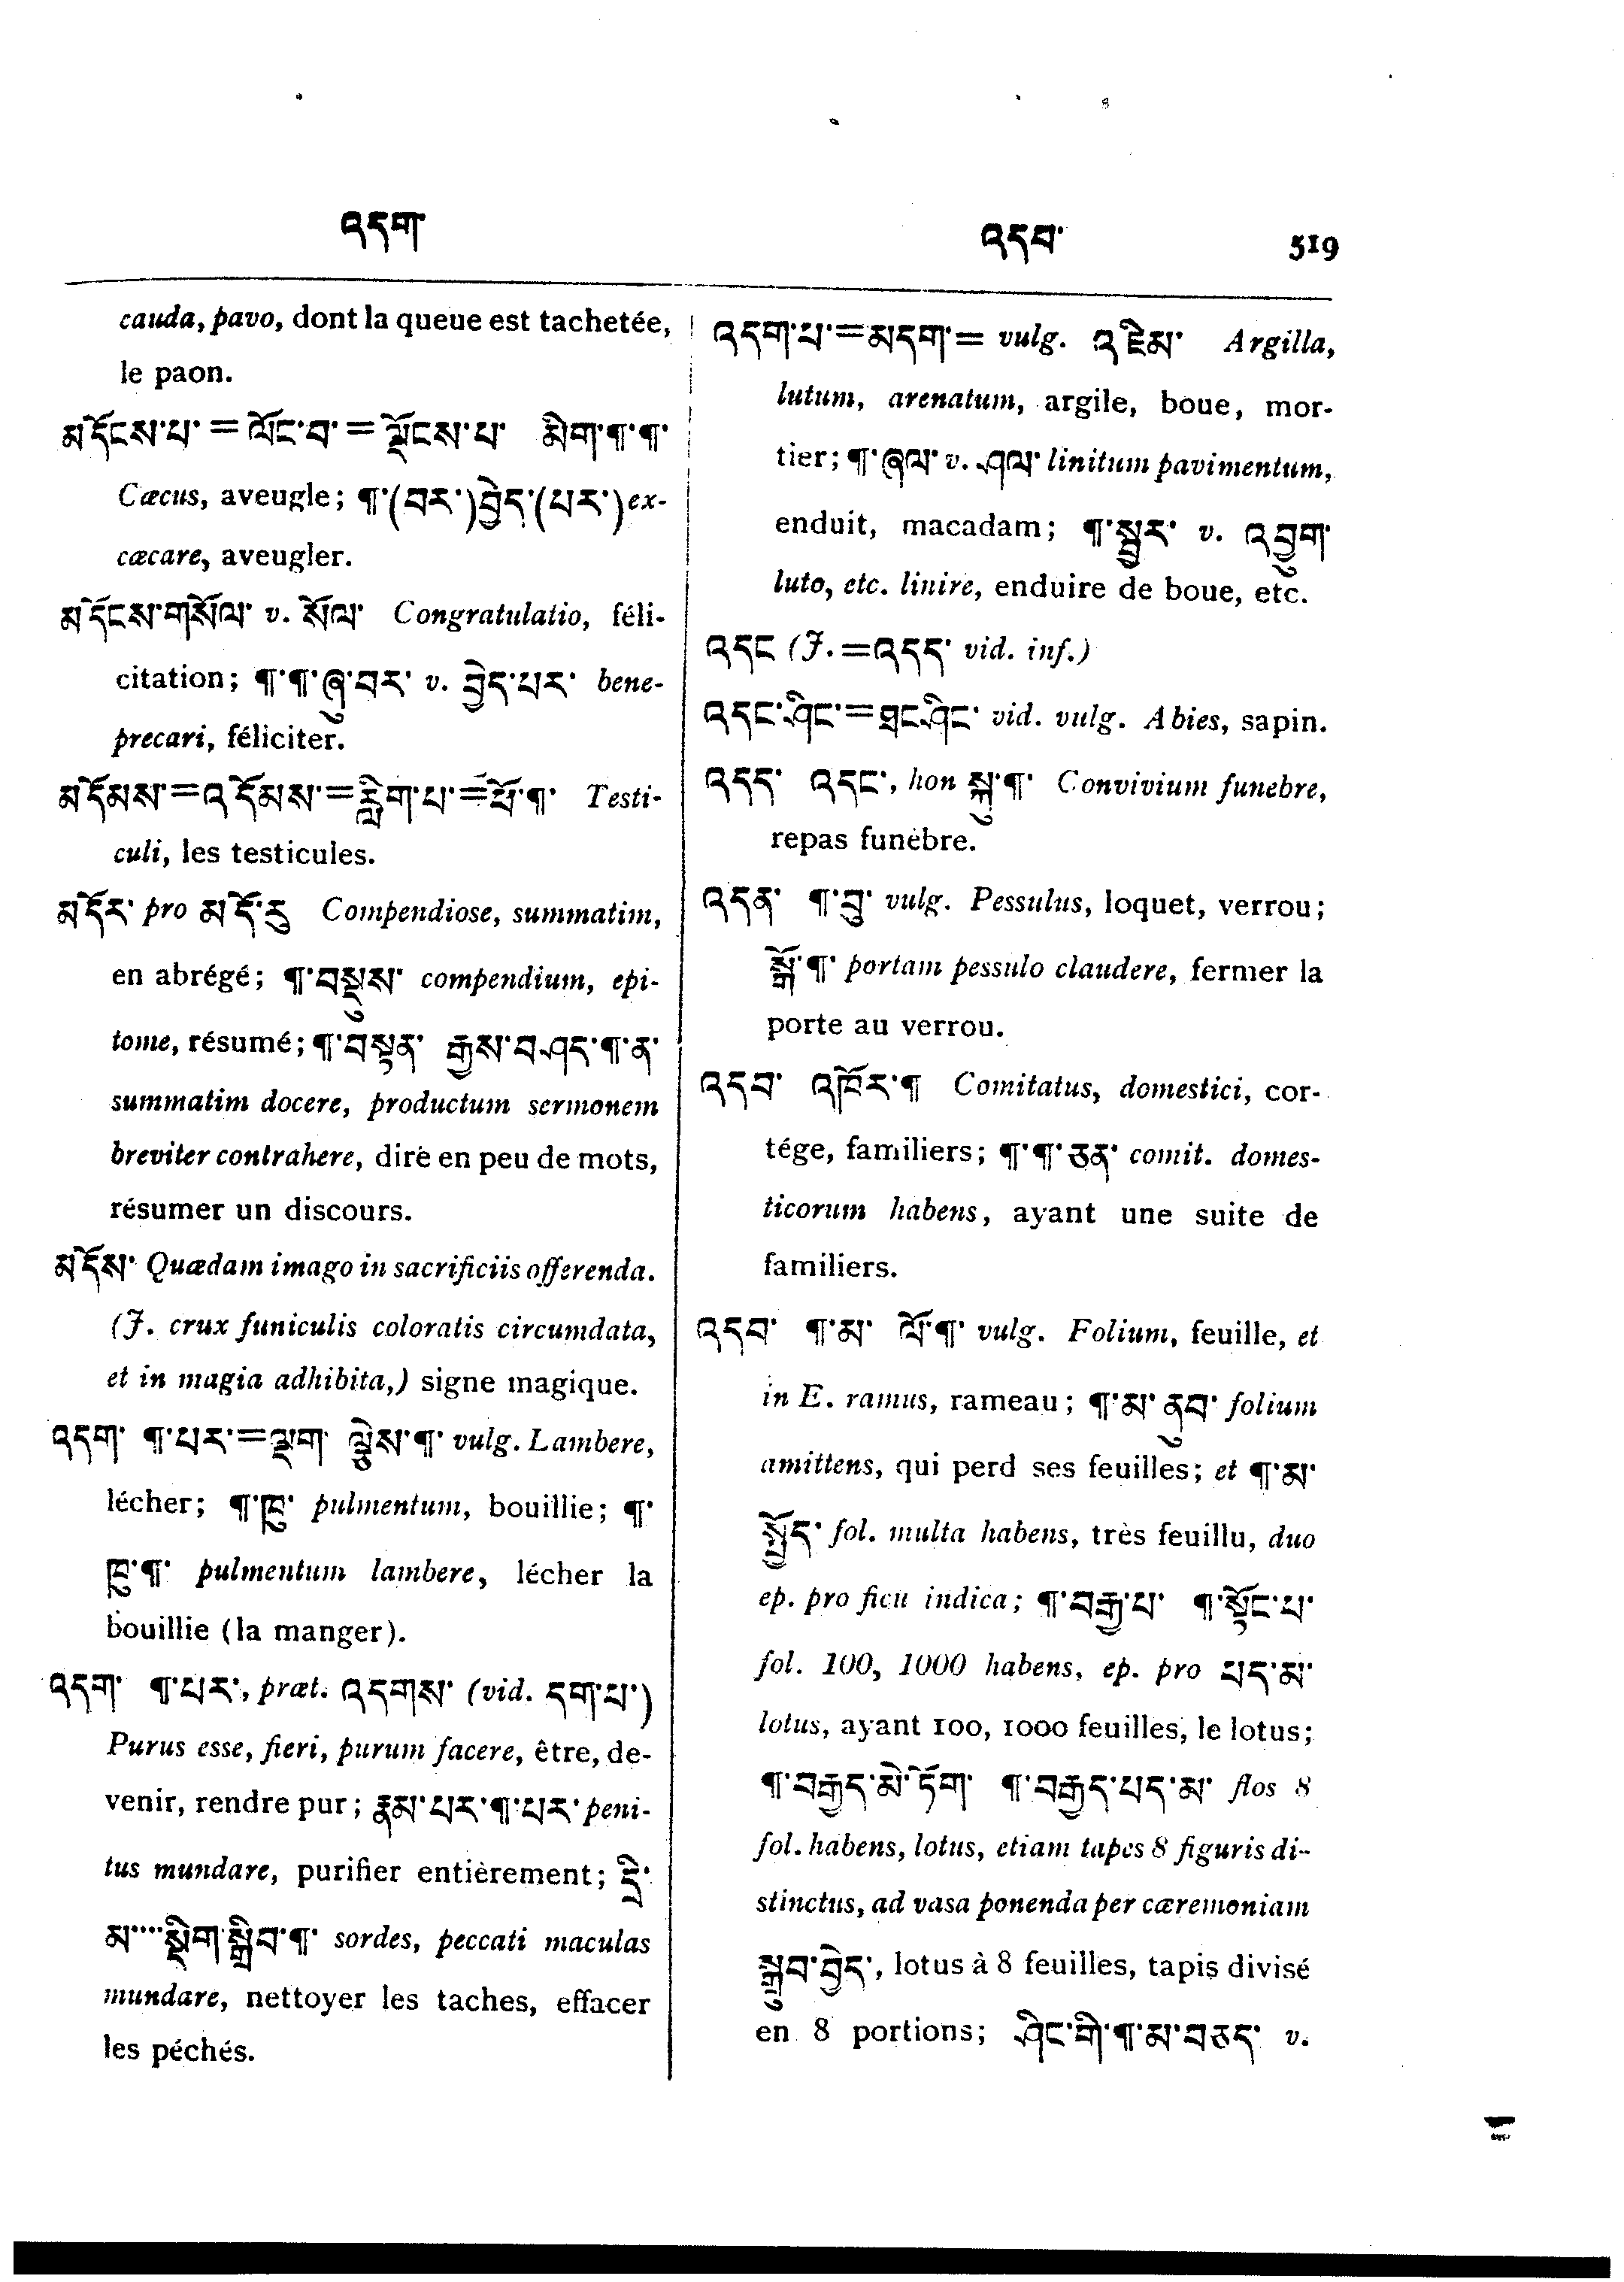 འདག་ འདབ་ 519
cauda, pavo, dont la queue est tachetée,
le paon.
མདོངས་པ་ = ལོང་བ་ = ལྡོངས་པ་ མིག་¶་¶་
Cæcus, aveugle; ¶་(བར་)བྱེད་(པར་) ex-
cæcare, aveugler.
མདོངས་གསོལ་ v. སོལ་ Congratulatio, féli-
citation; ¶་¶་ཞུ་བར་ v. བྱེད་པར་ bene-
precari, féliciter.
མདོམས་=འདོམས་=རླིག་པ་=ཕོ་¶་ Testi-
culi, les testicules.
མདོར་ pro མདོ་རུ Compendiose, summatim,
en abrégé; ¶་བསྡུས་ compendium, epi-
tome, résumé; ¶་བསྟན་ རྒྱས་བ་ཤད་¶་ན་
summatim docere, productum sermonem
breviter contrahere, dire en peu de mots,
résumer un discours.
མདོས་ Quædam imago in sacrificiis offerenda.
(J. crux funiculis coloratis circumdata,
et in magia adhibita,) signe magique.
འདག་ ¶་པར་=ལྡག་ ལྕེས་¶་ vulg. Lambere,
lécher; ¶་ཁུ་ pulmentum, bouillie; ¶་
ཁུ་¶་ pulmentum lambere, lécher la
bouillie (la manger).
འདག་ ¶་པར་, præt. འདགས་ (vid. དག་པ་)
Purus esse, fieri, purum facere, être, de-
venir, rendre pur; རྣམ་པར་¶་པར་ peni-
tus mundare, purifier entièrement; དྲི་
མ་····སྡིག་སྒྲིབ་¶་ sordes, peccati maculas
mundare, nettoyer les taches, effacer
les péchés.
འདག་པ་=མདག་= vulg. འཇིམ་ Argilla,
lutum, arenatum, argile, boue, mor-
tier; ¶་ཞལ་ v. ཤལ་ linitum pavimentum,
enduit, macadam; ¶་སྦྱར་ v. འབྱུག་
luto, etc. linire, enduire de boue, etc.
འདང (J. =འདད་ vid. inf.)
འདང་ཤིང་=ཐང་ཤིང་ vid. vulg. Abies, sapin.
འདད་ འདང་, hon སྐུ་¶་ Convivium funebre,
repas funèbre.
འདན་ ¶་བུ་ vulg. Pessulus, loquet, verrou;
སྒོ་¶་ portam pessulo claudere, fermer la
porte au verrou.
འདབ་ འཁོར་¶ Comitatus, domestici, cor-
tége, familiers; ¶་¶་ཅན་ comit. domes-
ticorum habens, ayant une suite de
familiers.
འདབ་ ¶་མ་ ལོ་¶་ vulg. Folium, feuille, et
in E. ramus, rameau; ¶་མ་ ནུབ་ folium
amittens, qui perd ses feuilles; et ¶་མ་
སྤྱོད་ fol. multa habens, très feuillu, duo
ep. pro ficu indica; ¶་བརྒྱ་པ་ ¶་སྟོང་པ་
fol. 100, 1000 habens, ep. pro པད་མ་
lotus, ayant 100, 1000 feuilles, le lotus;
¶་བརྒྱད་མེ་ཏོག་ ¶་བརྒྱད་པད་མ་ flos 8
fol. habens, lotus, etiam tapes 8 figuris di-
stinctus, ad vasa ponenda per cæremoniam
སྒྲུབ་བྱེད་, lotus à 8 feuilles, tapis divisé
en 8 portions; ཤིང་གི་¶་མ་བཅད་ v.